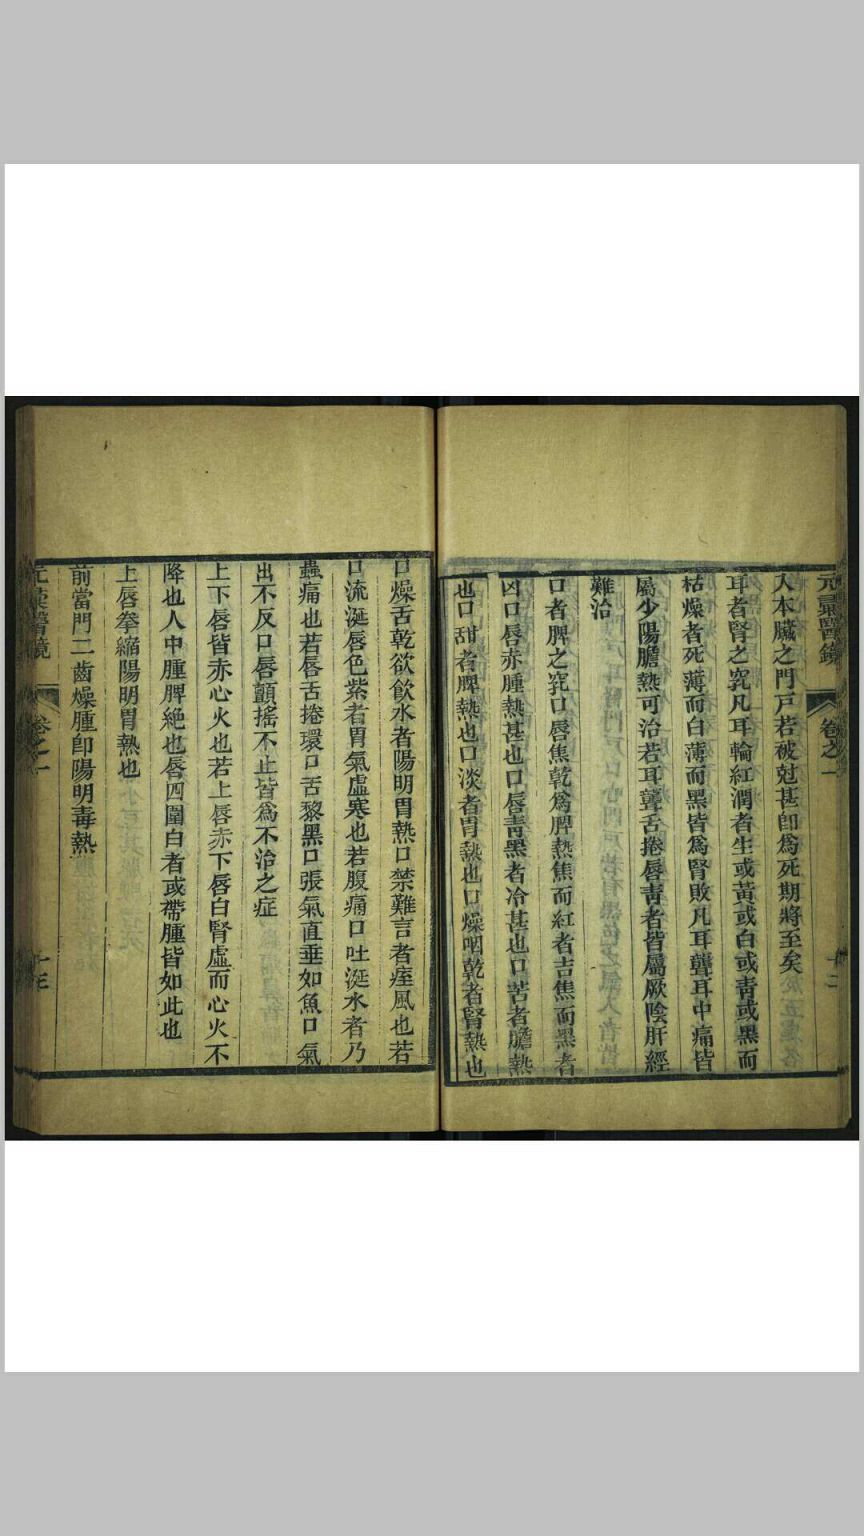 醫鏡
卷之一
十二
入本臟之門戶若被尅甚卽爲死期將至矣
耳者腎之竅凡耳輪紅潤者生或黃或白或靑或黑而
枯燥者死薄而白薄而黑皆爲腎敗凡耳聾耳中痛皆
屬少陽膽熱可治若耳聾舌捲唇靑者皆屬厥陰肝經
難治
口者脾之竅口唇焦乾爲脾熱焦而紅者吉焦而黑者
凶口唇赤腫熱甚也口唇靑黑者冷甚也口苦者膽熱
也口甜者脾熱也口淡者胃熱也口燥咽乾者腎熱也
口燥舌乾欲飮水者陽明胃熱口禁難言者痓風也若
口流涎唇色紫者胃氣虛寒也若腹痛口吐涎水者乃
蟲痛也若唇舌捲環口舌黎黑口張氣直垂如魚口氣
出不反口唇顫搖不止皆爲不治之症
上下唇皆赤心火也若上唇赤下唇白腎虛而心火不
降也人中腫脾絶也唇四圍白者或帶腫皆如此也
上唇拳縮陽明胃熱也
前當門二齒燥腫卽陽明毒熱
醫鏡
卷之一
十三